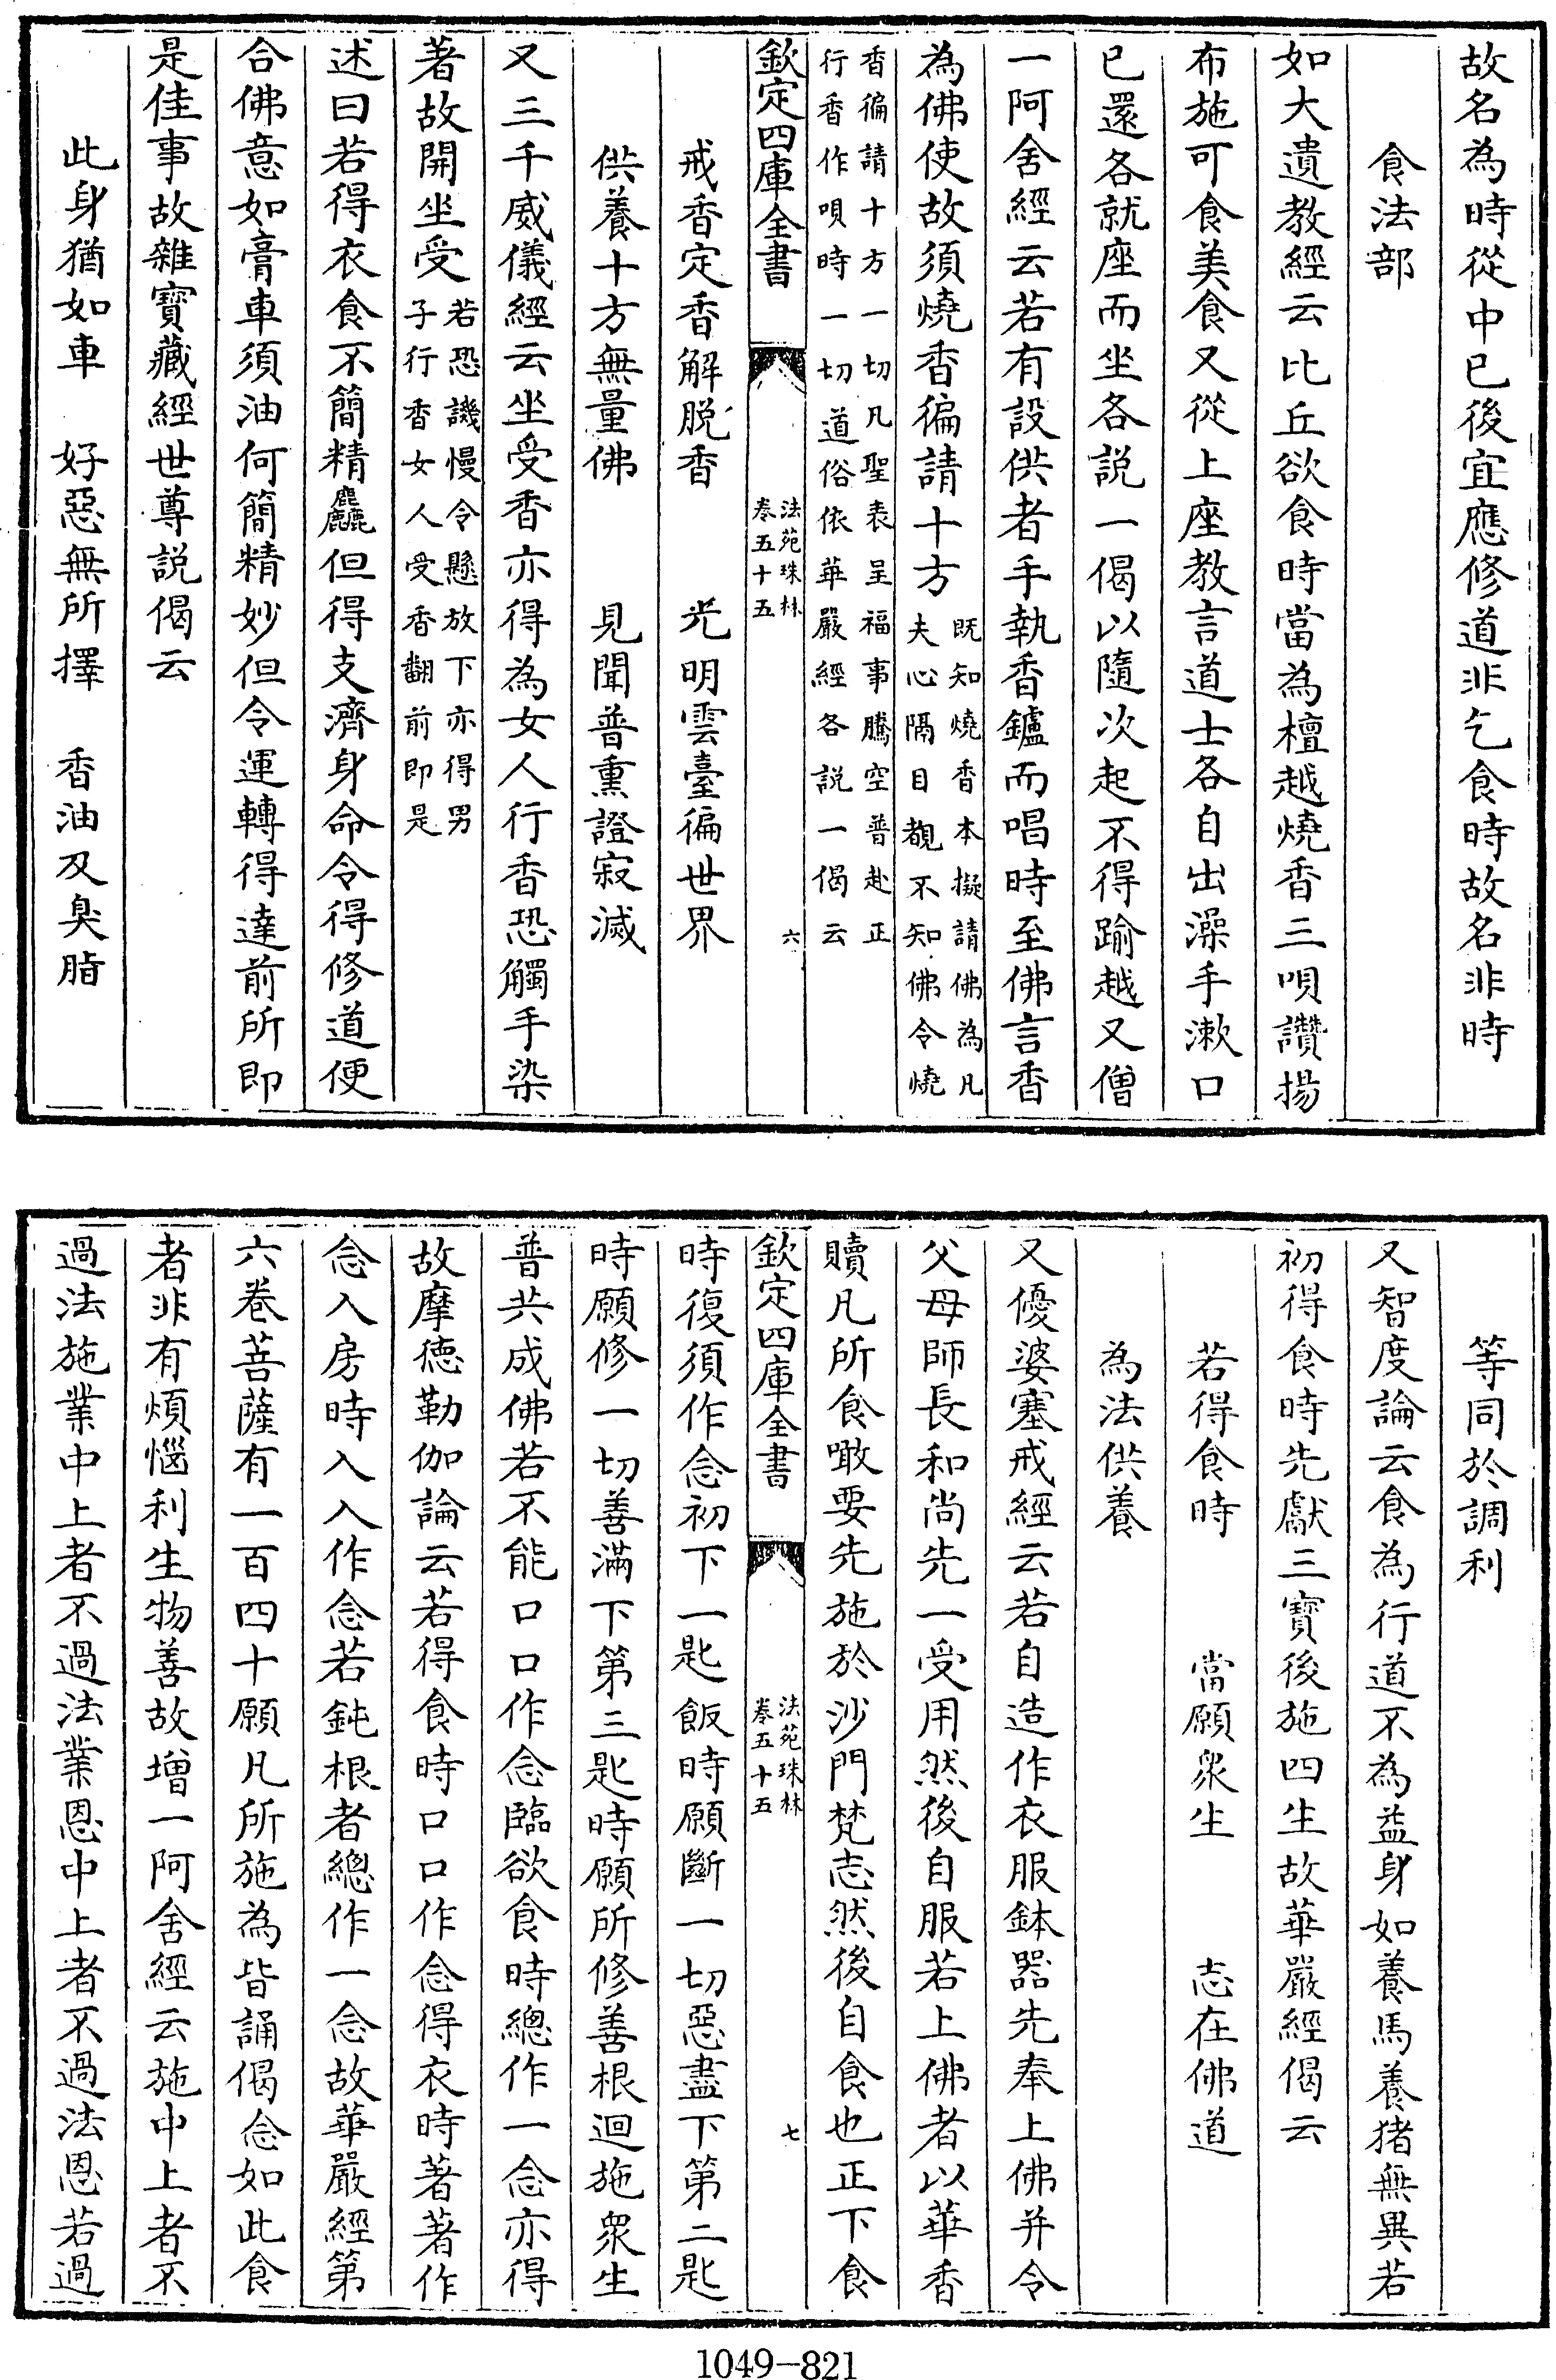 故名為時從中已後宜應修道非乞食時故名非時
食法部
如大遺教經云比丘欲食時當為檀越燒香三唄讚揚
布施可食美食又從上座教言道士各自出澡手漱口
已還各就座而坐各説一偈以隨次起不得踰越又僧
一阿含經云若有設供者手執香鑪而唱時至佛言香
為佛使故須燒香徧請十方既知燒香本擬請佛為凡夫心隔目覩不知佛令燒
香徧請十方一切凡聖表呈福事騰空普赴正行香作唄時一切道俗依華嚴經各説一偈云
欽定四庫全書 法苑珠林卷五十五 六
戒香定香解脱香 光明雲臺徧世界
供養十方無量佛 見聞普熏證寂滅
又三千威儀經云坐受香亦得為女人行香恐觸手染
著故開坐受若恐譏慢令懸放下亦得男子行香女人受香翻前即是
述曰若得衣食不簡精麤但得支濟身命令得修道便
合佛意如膏車須油何簡精妙但令運轉得達前所即
是佳事故雜寶藏經世尊説偈云
此身猶如車 好惡無所擇 香油及臭脂
等同於調利
又智度論云食為行道不為益身如養馬養猪無異若
初得食時先獻三寶後施四生故華嚴經偈云
若得食時 當願衆生 志在佛道
為法供養
又優婆塞戒經云若自造作衣服鉢器先奉上佛并令
父母師長和尚先一受用然後自服若上佛者以華香
贖凡所食噉要先施於沙門梵志然後自食也正下食
欽定四庫全書 法苑珠林卷五十五 七
時復須作念初下一匙飯時願斷一切惡盡下第二匙
時願修一切善滿下第三匙時願所修善根迴施衆生
普共成佛若不能口口作念臨欲食時總作一念亦得
故摩徳勒伽論云若得食時口口作念得衣時著著作
念入房時入入作念若鈍根者總作一念故華嚴經第
六卷菩薩有一百四十願凡所施為皆誦偈念如此食
者非有煩惱利生物善故增一阿含經云施中上者不
過法施業中上者不過法業恩中上者不過法恩若過
1049-821